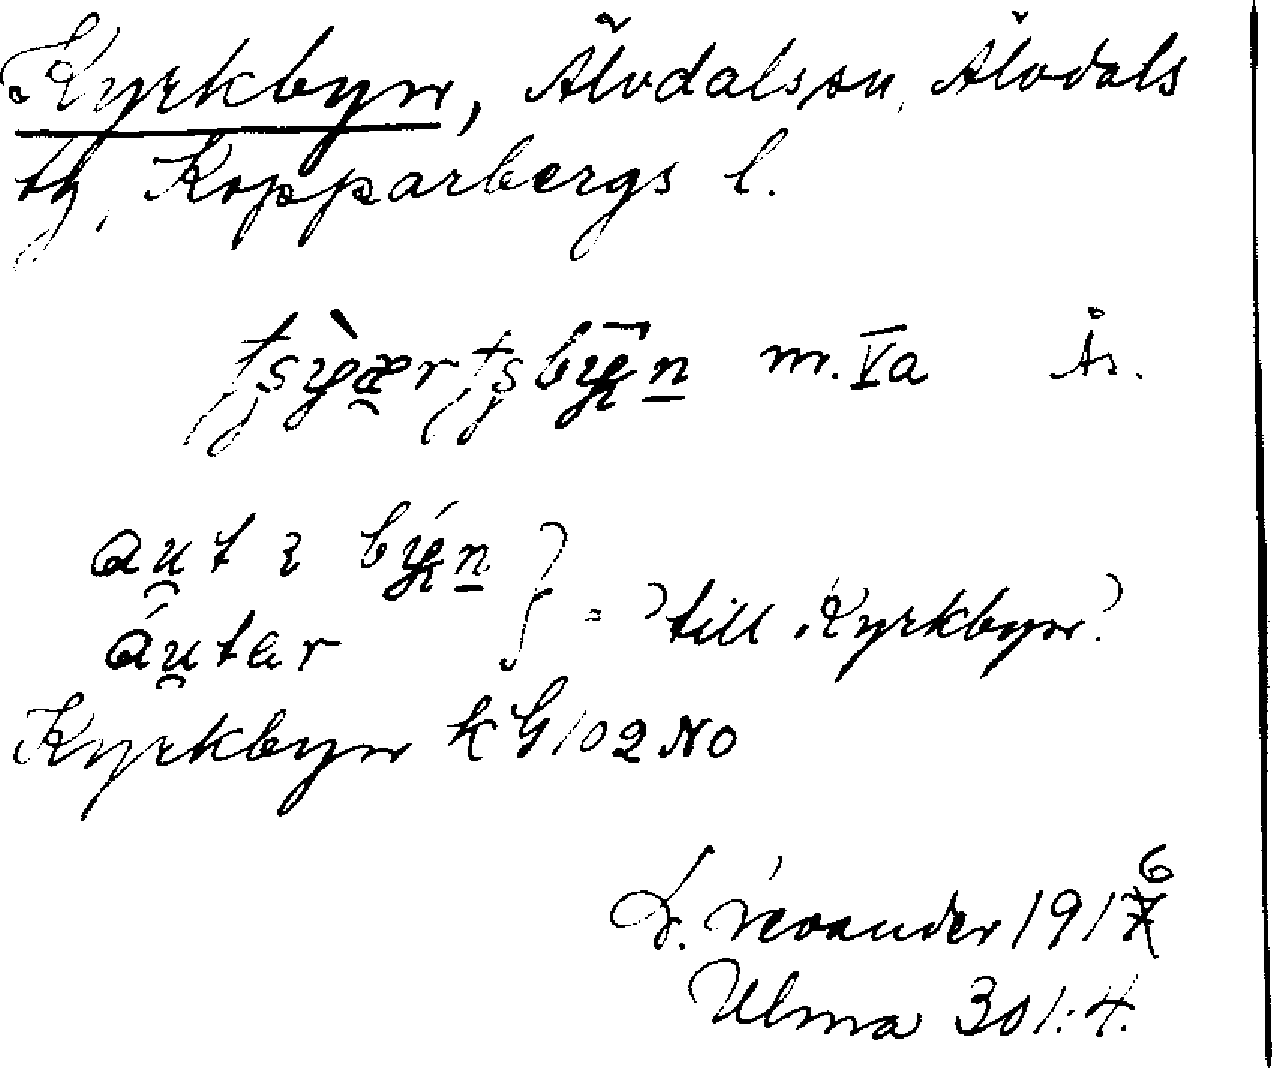 Kyrkbyn, Älvdals sn, Älvdals
tg, Kopparbergs l.
m. Va
aut i býn
áutär } = 'till Kyrkbyn'.
Kyrkbyn k G 102 NO
L. Levander 1916
Ulma 301:4.